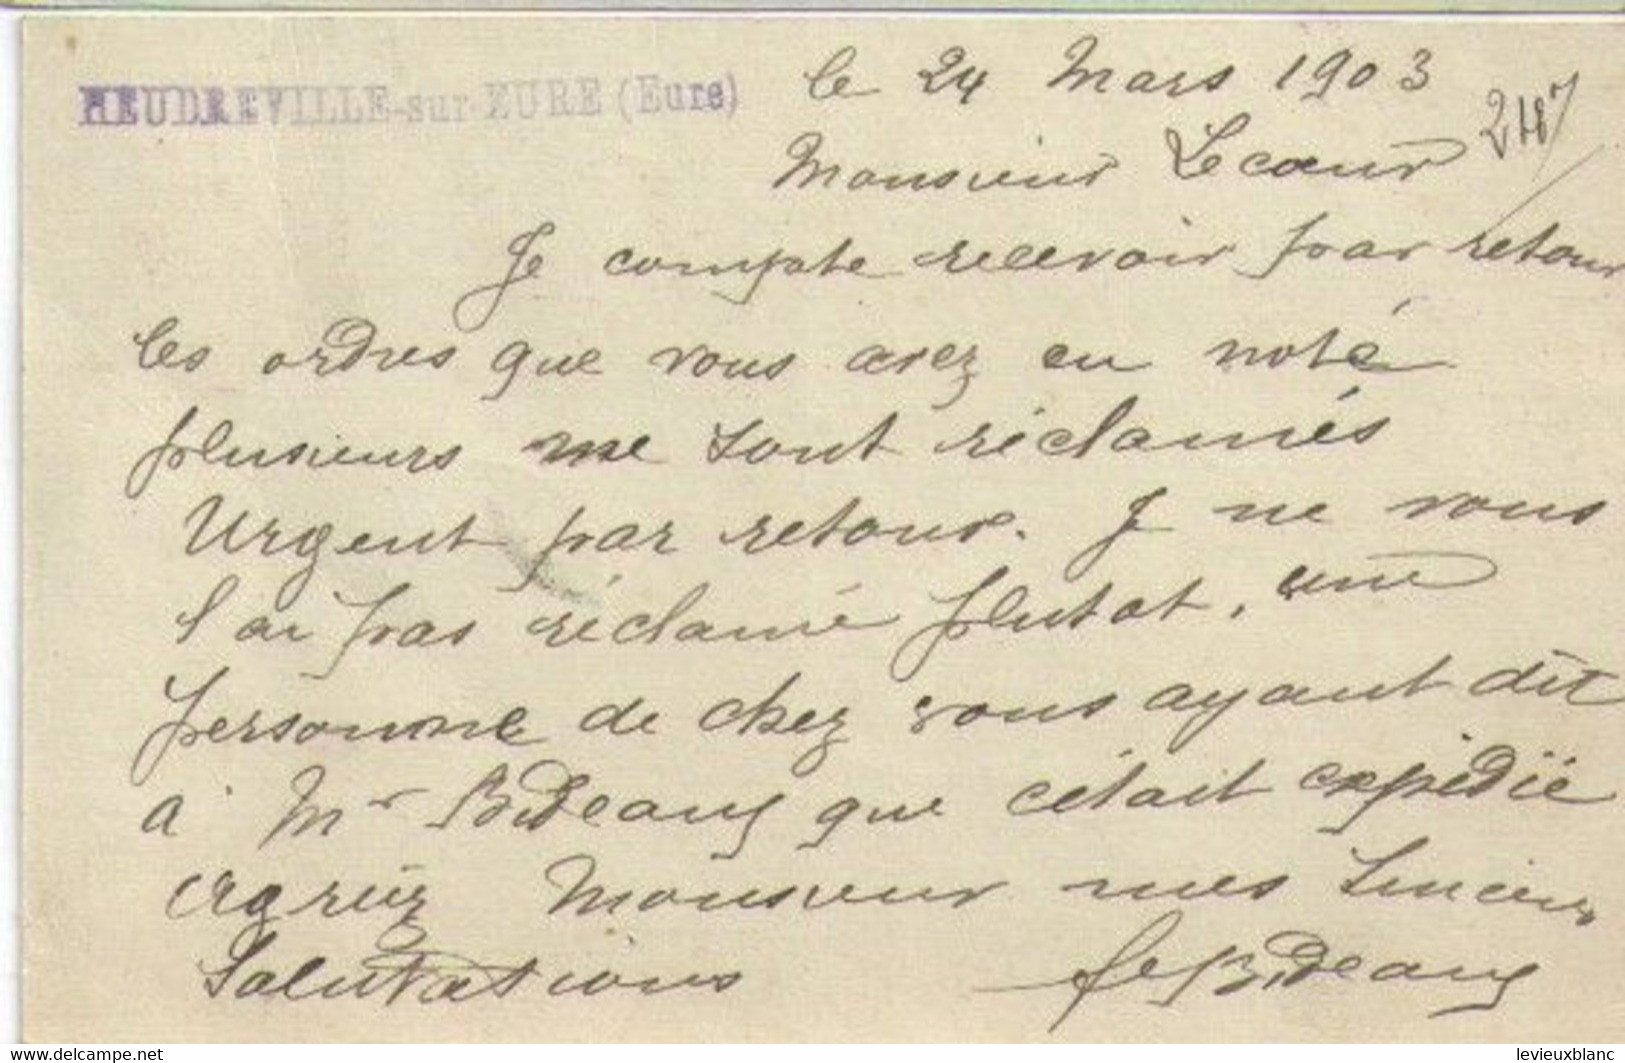 HEUDREVILLE-sur-EURE (Eure)
le 24 Mars 1903
2187
Monsieur Lecœur
Je compte recevoir par retour
les ordres que vous avez en noté
plusieurs me sont réclamés
Urgent par retour. Je ne vous
l'ai pas réclamé plutot, une
personne de chez vous ayant dit
à Mr Bideaux que cétait expédié
Agréez Monsieur mes Sincères
Salutations
Bideaux
levieuxblanc
www.delcampe.net